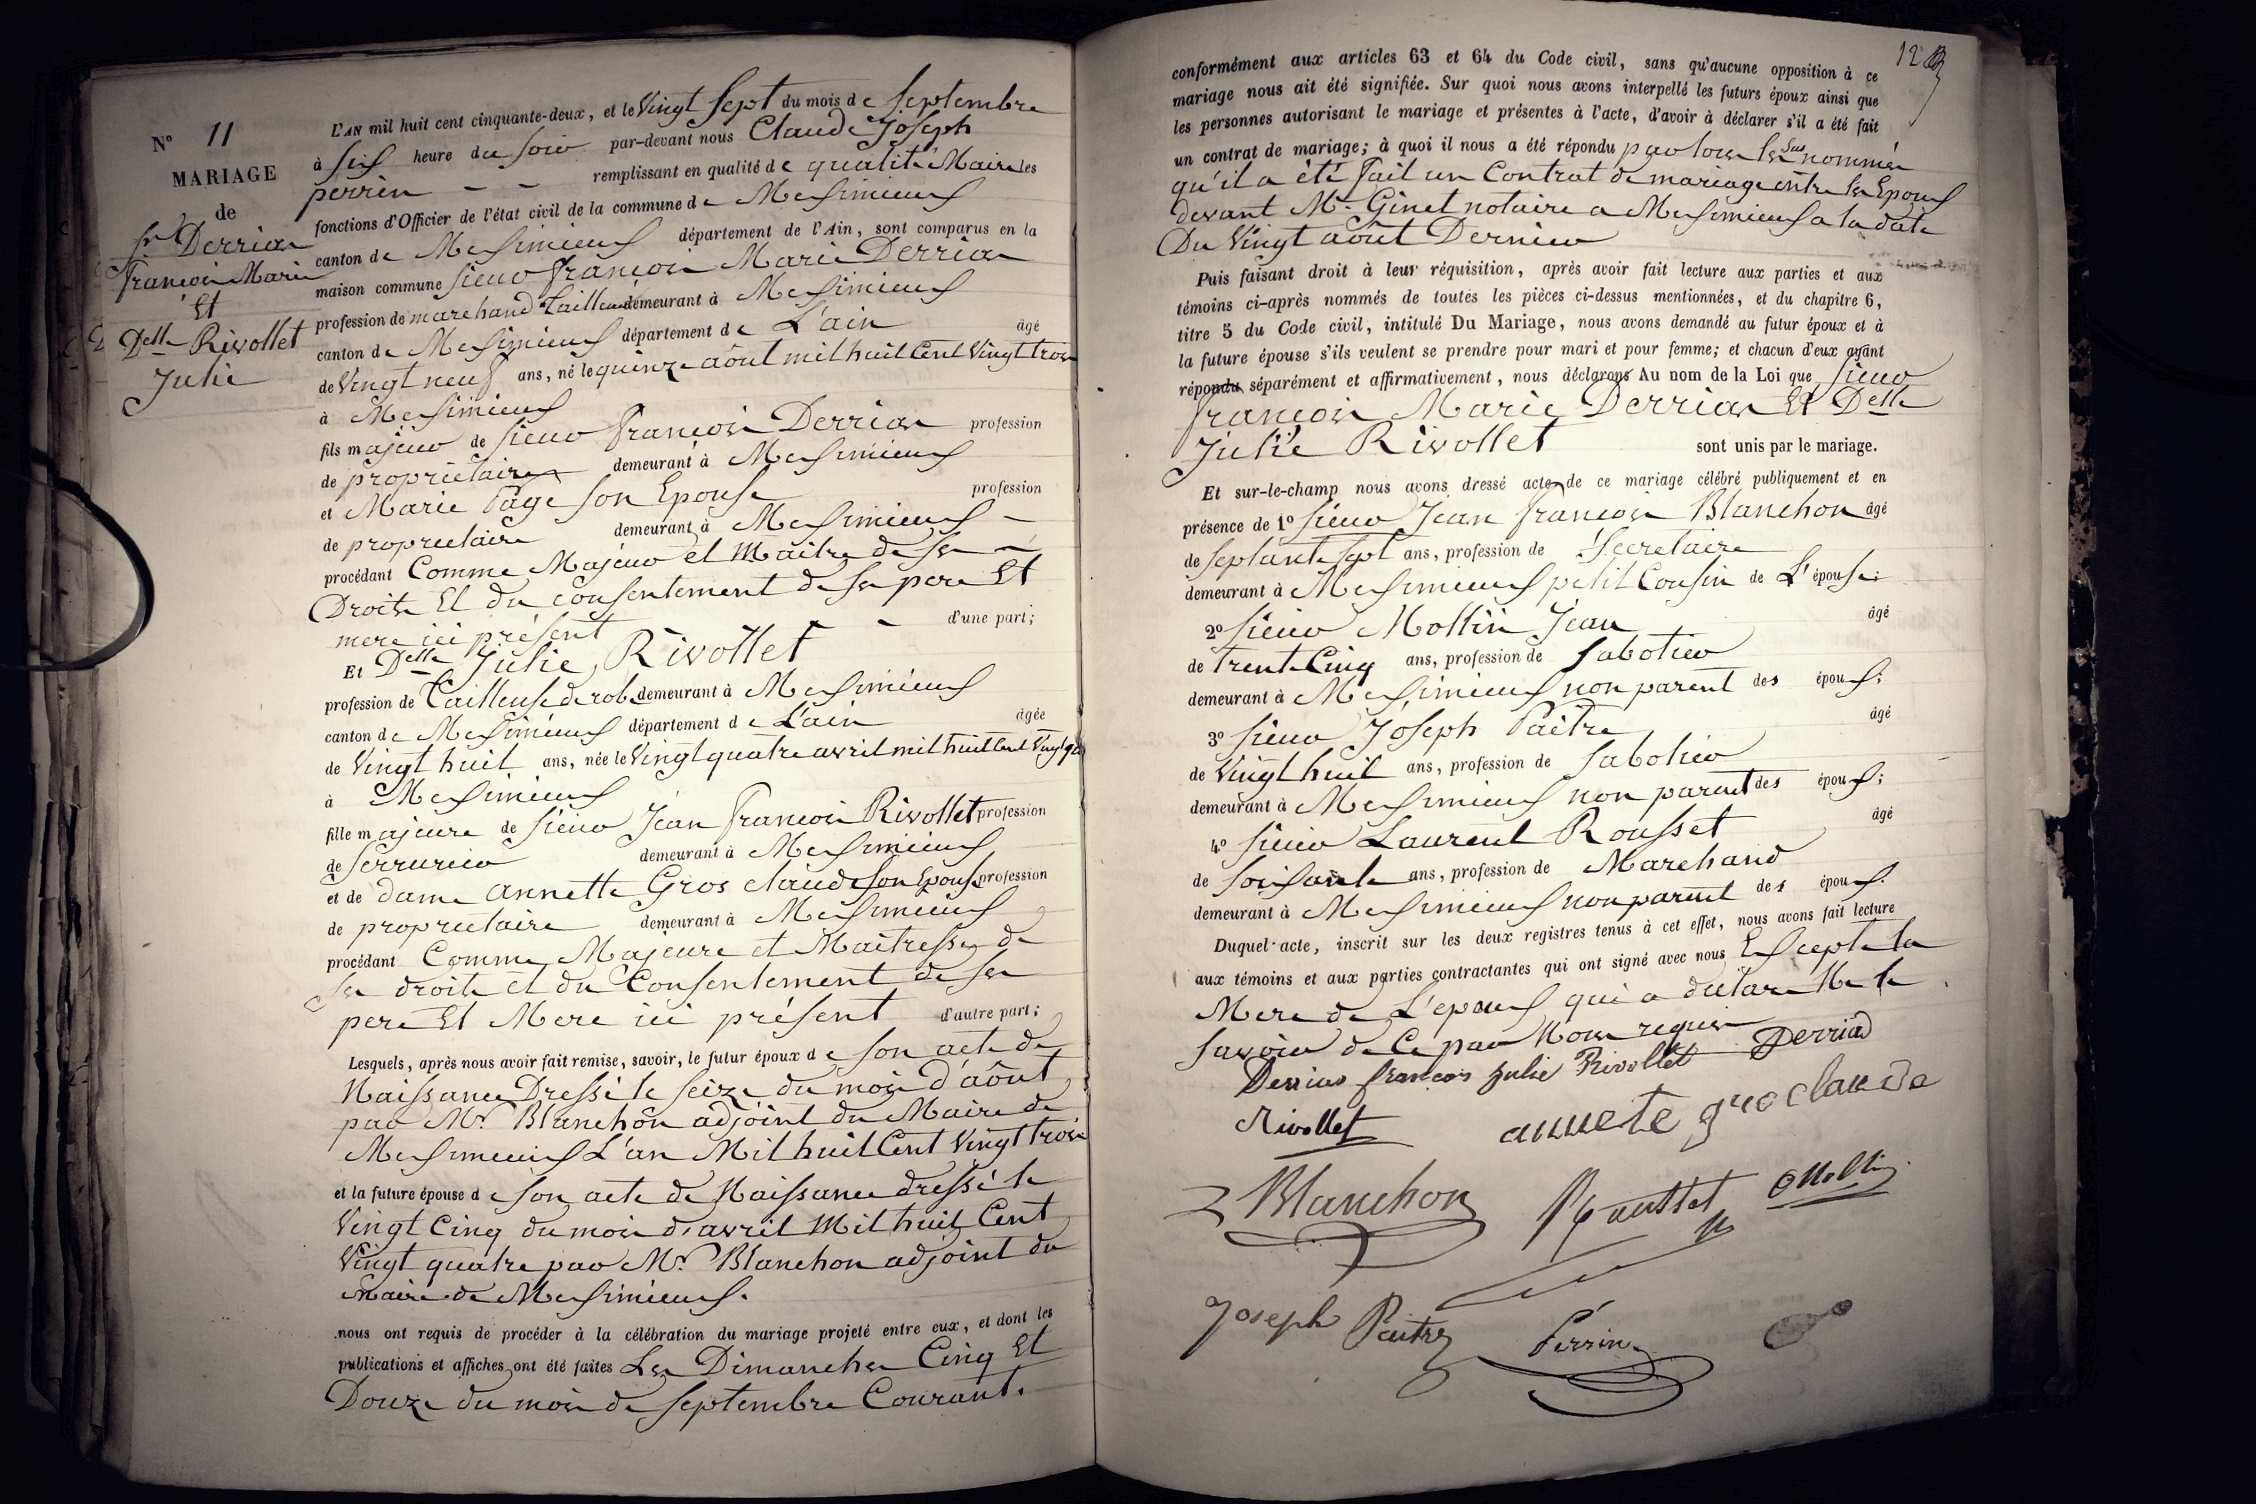 N° 11
MARIAGE
de
Sr Derrias
François Marie
Et
Delle Rivollet
Julie
L'AN mil huit cent cinquante-deux, et le Vingt Sept du mois de Septembre
à Six heure du Soir par-devant nous Claude Joseph
perrin - - remplissant en qualité de qualité Maire les
fonctions d'Officier de l'état civil de la commune de Meximieux
canton de Meximieux département de l'Ain, sont comparus en la
maison commune Sieur François Marie Derrias
profession de marchand Tailleur demeurant à Meximieux
canton de Meximieux département de L'ain âgé
de Vingt neuf ans, né le quinze août mil huit Cent Vingt trois
à Meximieux
fils majeur de Sieur François Derrias profession
de propriétaire demeurant à Meximieux
et Marie Page Son Epouse profession
de propriétaire demeurant à Meximieux -
procédant Comme Majeur et Maitre de Ses -
Droits Et du consentement de Ses pere Et
mere ici présent - - d'une part;
Et Delle Julie Rivollet
profession de Tailleuse de robe demeurant à Meximieux
canton de Meximieux département de L'ain âgée
de Vingt huit ans, née le Vingt quatre avril mil huit Cent Vingt qu
à Meximieux
fille majeure de Sieur Jean François Rivollet profession
de Serrurier demeurant à Meximieux
et de dame annette Gros claude Son Epouse profession
de propriétaire demeurant à Meximieux
procédant Comme Majeure et Maitresse de
Ses droits et du Consentement de Ses
pere Et Mere ici présent d'autre part;
Lesquels, après nous avoir fait remise, savoir, le futur époux de Son acte de
Naissance Dressé le Seize du mois d'août
par Mr Blanchon adjoint du Maire de
Meximieux L'an Mil huit Cent Vingt trois
et la future épouse de Son acte de Naissance dressé le
Vingt Cinq du mois d'avril Mil huit Cent
Vingt quatre par Mr Blanchon adjoint du
Maire de Meximieux.
nous ont requis de procéder à la célébration du mariage projeté entre eux, et dont les
publications et affiches ont été faites Les Dimanches Cinq Et
Douze du mois de Septembre Courant.
12
conformément aux articles 63 et 64 du Code civil, sans qu'aucune opposition à ce
mariage nous ait été signifiée. Sur quoi nous avons interpellé les futurs époux ainsi que
les personnes autorisant le mariage et présentes à l'acte, d'avoir à déclarer s'il a été fait
un contrat de mariage; à quoi il nous a été répondu par tous les Sus nommés
qu'il a été fait un Contrat de mariage entre les Epoux
devant Mr Ginet notaire a Meximieux a la date
Du Vingt août Dernier
Puis faisant droit à leur réquisition, après avoir fait lecture aux parties et aux
témoins ci-après nommés de toutes les pièces ci-dessus mentionnées, et du chapitre 6,
titre 5 du Code civil, intitulé Du Mariage, nous avons demandé au futur époux et à
la future épouse s'ils veulent se prendre pour mari et pour femme; et chacun d'eux ayant
répondu séparément et affirmativement, nous déclarons Au nom de la Loi que Sieur
François Marie Derrias Et Delle
Julie Rivollet sont unis par le mariage.
Et sur-le-champ nous avons dressé acte de ce mariage célébré publiquement et en
présence de 1° Sieur Jean François Blanchon âgé
de Septante Sept ans, profession de Secretaire
demeurant à Meximieux petit Cousin de L'épouse;
2° Sieur Mollin Jean âgé
de trente Cinq ans, profession de Sabotier
demeurant à Meximieux non parent des époux;
3° Sieur Joseph Paitre âgé
de Vingt huit ans, profession de Sabotier
demeurant à Meximieux non parent des époux;
4° Sieur Laurent Rousset âgé
de Soixante ans, profession de Marchand
demeurant à Meximieux non parent des époux.
Duquel acte, inscrit sur les deux registres tenus à cet effet, nous avons fait lecture
aux témoins et aux parties contractantes qui ont signé avec nous Excepté la
Mere de L'epoux qui a déclaré Ne le
Savoir de Ce par Nous requis
Derrias françois Julie Rivollet Derrias
Rivollet annete groclaude
Blanchon Rousset Mollin
Joseph Paitre Perrin